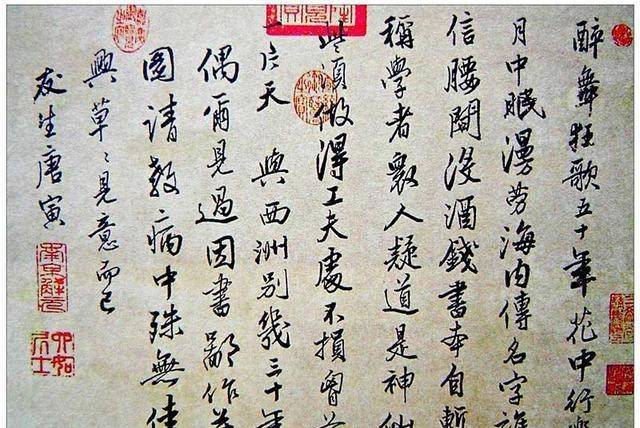 醉舞狂歌五十年花中行樂
月中眠漫勞海内傳名字誰
信腰間沒酒錢書本自慙
稱學者衆人疑道是神仙
些須做得工夫處不損胷前
一片天 與西洲別幾三十年
偶爾見過因書鄙作並
圖請教病中殊無佳
興草〻見意而已
友生唐寅
南京解元
六如居士